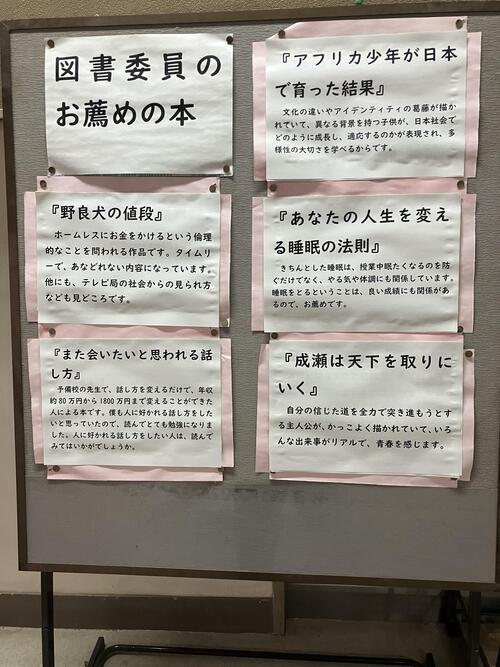 図書委員の
お薦めの本
『アフリカ少年が日本
で育った結果』
文化の違いやアイデンティティの葛藤が描か
れていて、異なる背景を持つ子供が、日本社会で
どのように成長し、適応するのかが表現され、多
様性の大切さを学べるからです。
『野良犬の値段』
ホームレスにお金をかけるという倫理
的なことを問われる作品です。タイムリ
ーで、あなどれない内容になっています。
他にも、テレビ局の社会からの見られ方
なども見どころです。
『あなたの人生を変え
る睡眠の法則』
きちんとした睡眠は、授業中眠たくなるのを防
ぐだけでなく、やる気や体調にも関係しています。
睡眠をとるということは、良い成績にも関係があ
るので、お薦めです。
『また会いたいと思われる話
し方』
予備校の先生で、話し方を変えるだけで、年収
約80万円から1800万円まで変えることができた
人による本です。僕も人に好かれる話し方をした
いと思っていたので、読んでとても勉強になりまし
た。人に好かれる話し方をしたい人は、読んで
みてはいかがでしょうか。
『成瀬は天下を取りに
いく』
自分の信じた道を全力で突き進もうとす
る主人公が、かっこよく描かれていて、いろ
んな出来事がリアルで、青春を感じます。